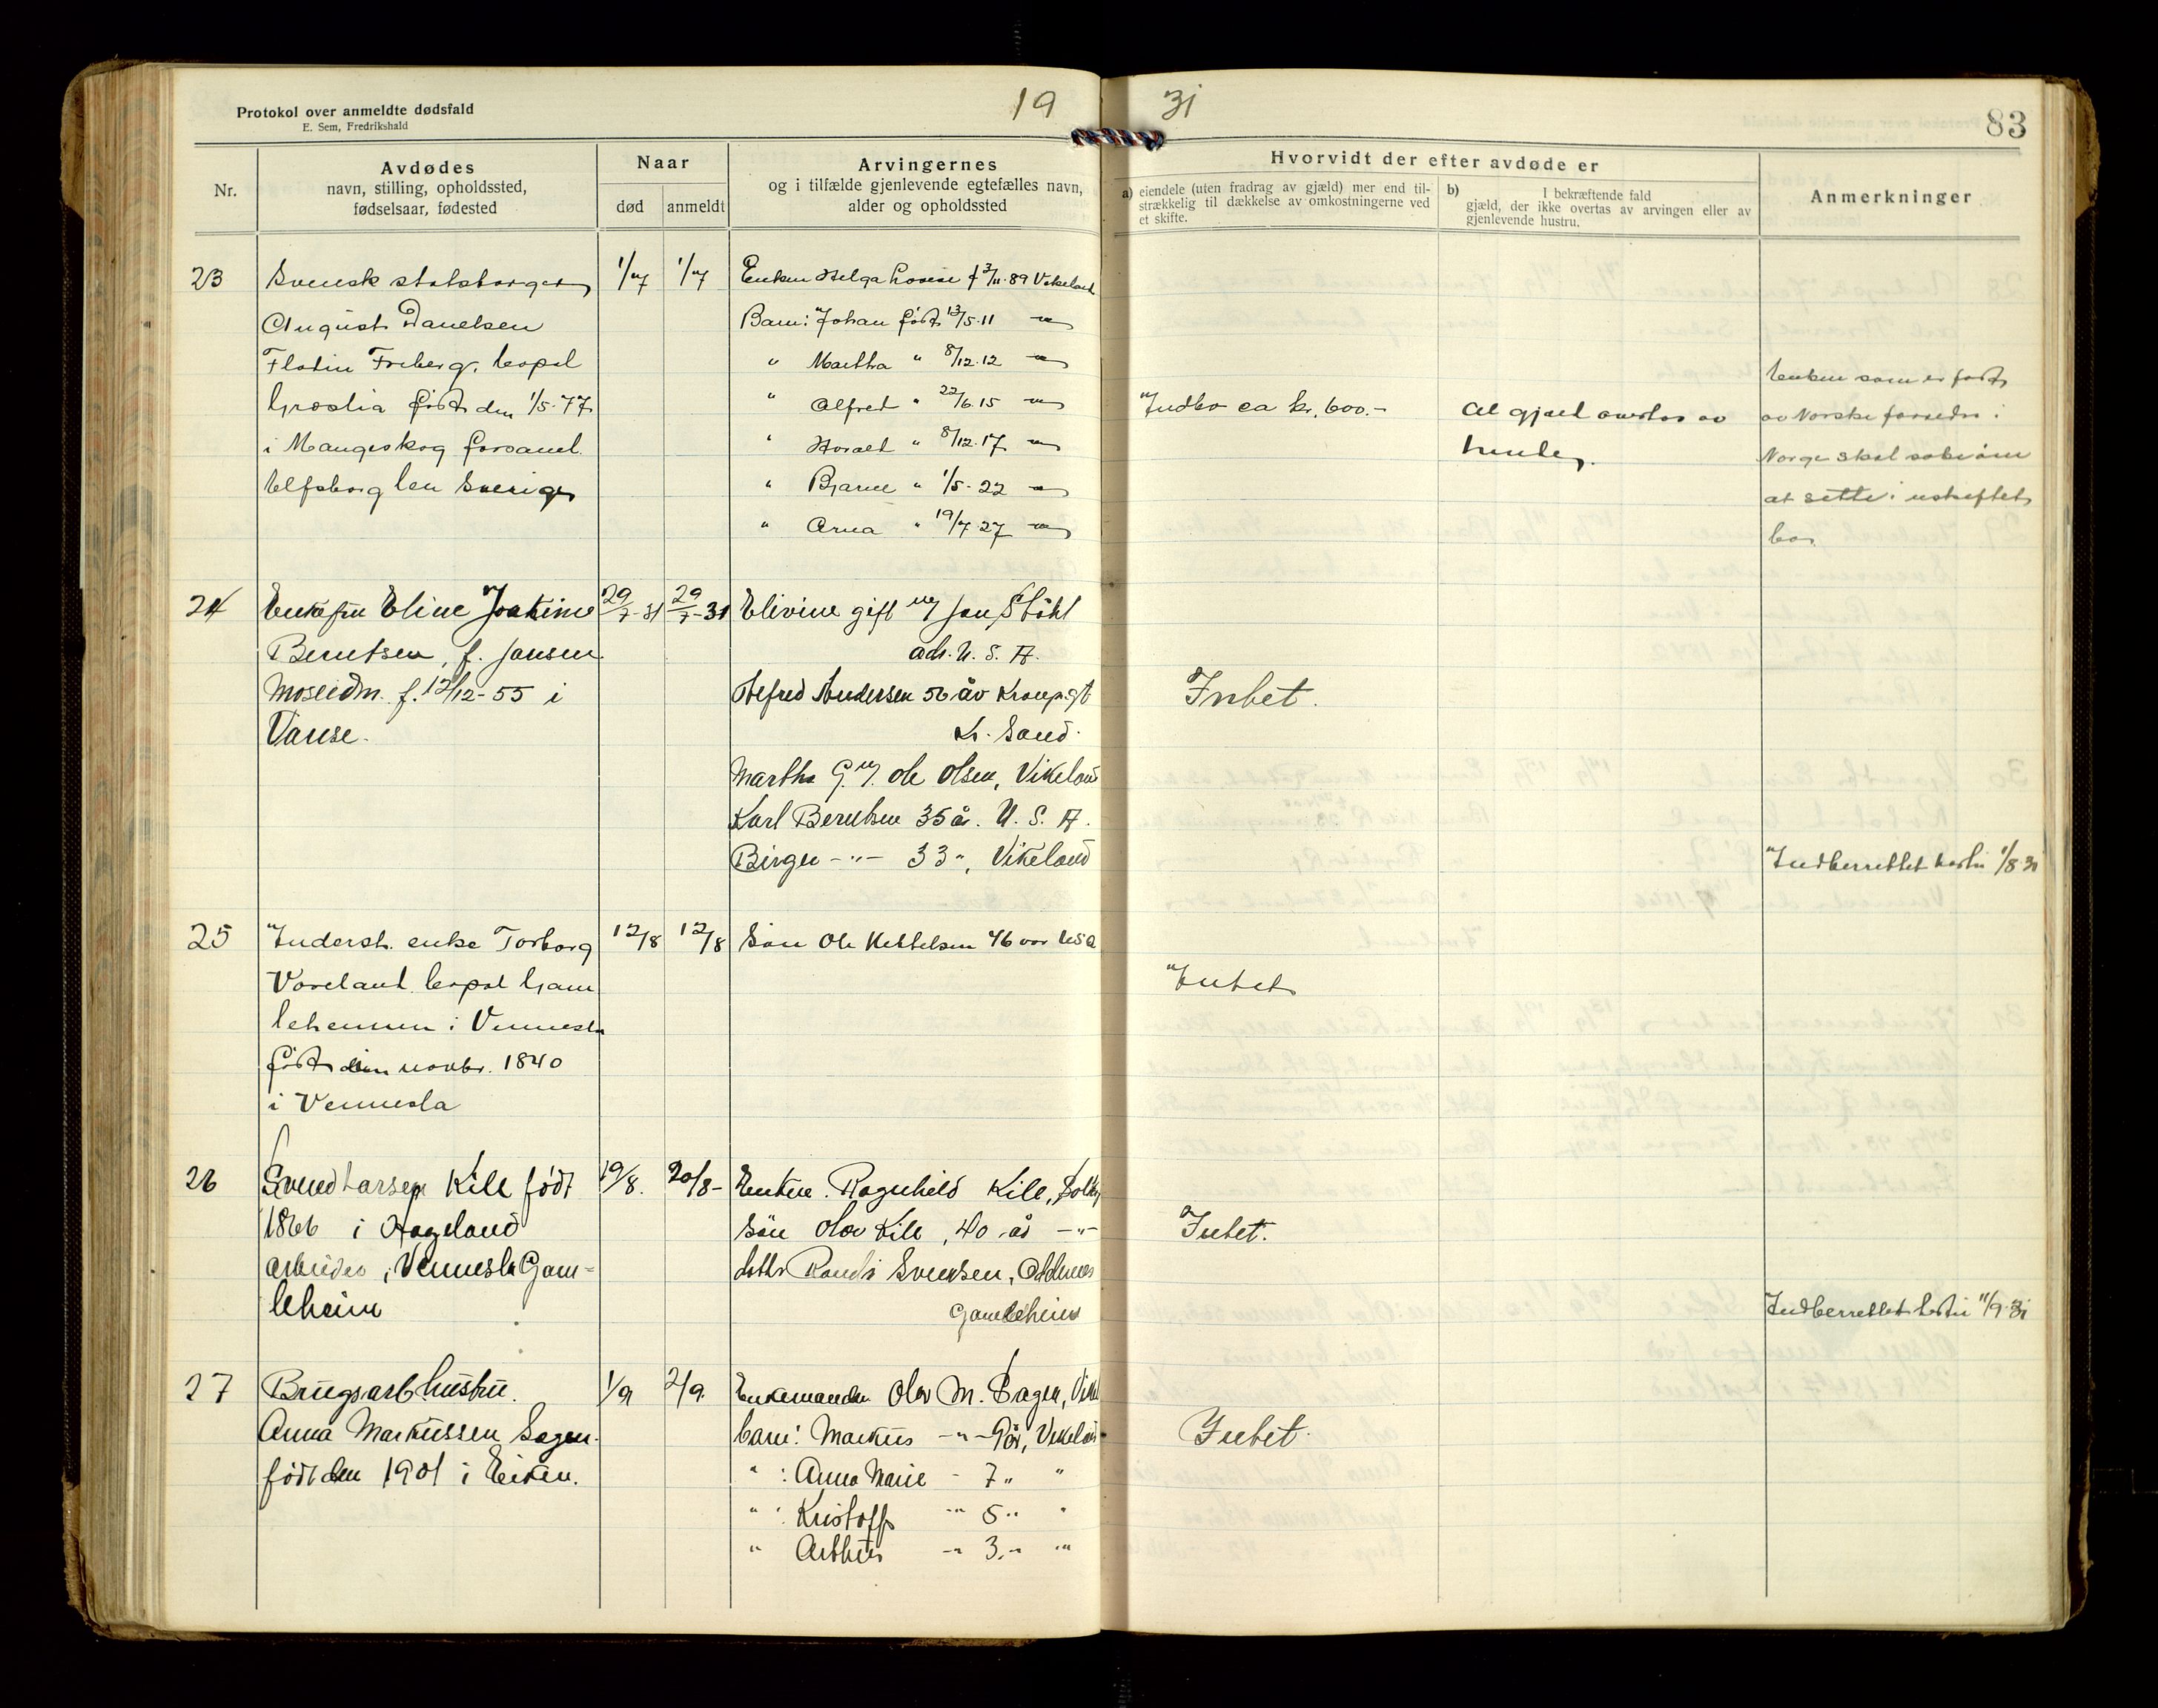 Protokol over anmeldte dødsfald
E. Sem, Fredrikshald
19 31
83
Nr.
Avdødes
navn, stilling, opholdssted,
fødselsaar, fødested
Naar
død
anmeldt
Arvingernes
og i tilfælde gjenlevende egtefælles navn,
alder og opholdssted
Hvorvidt der efter avdøde er
a) eiendele (uten fradrag av gjæld) mer end til-
strækkelig til dækkelse av omkostningerne ved
et skifte.
b) I bekræftende fald
gjæld, der ikke overtas av arvingen eller av
gjenlevende hustru.
Anmerkninger
23
Svensk statsborger
August Danelsen
Flatin Friberg, bopal
Groslia født den 1/5-77
i Mangeskog forsaml.
Elfsborg len Sverige
1/7
1/7
Enken Helga Lovise f 3/11-89 Vikeland
Barn: Johan født 13/5-11 -"-
" Martha " 8/12-12 -"-
" Alfred " 22/6-15 -"-
" Harald " 8/12-17 -"-
" Bjarne " 1/5-22 -"-
" Arna " 19/7-27 -"-
Indbo ca kr, 600.-
Al gjæl overtas av
Enken som er født
av Norske forældre i
Norge skal søke om
at sitte i uskiftet
bo.
24
Enkefru Eline Joakime
Berntsen, f. Jansen.
Moseidm. f. 12/12-55 i
Vanse.
29/7-31
29/7-31
Elivine gift m/ Jan Ståhl
adr. U. S. A.
Alfred Andersen 56 år Krongt
Kr. Sand.
Martha G. m/ Ole Olsen, Vikeland
Karl Berntsen 35 år. U. S. A.
Birger -"- 33 ", Vikeland
Intet.
Indberrettet 1/8 31
25
Inderst. enke Torborg
Voreland bopal Gam
leheimen i Vennesla
født den novbr. 1840
i Vennesla
12/8
12/8
Søn Ole Kittelsen 46 aar USA
Intet
26
Svend Larsen Kile født
1866 i Hægeland
arbeider i Vennesla Gam-
leheim
19/8.
20/8-
Enken. Ragnhild Kile,
Søn Olav Kile, 40 år -"-
dattr Randi Svensen, Oddernes
Gamleheim
Intet.
Indberrettet 11/9-31
27
Brugsarb. hustru.
Anna Markussen Sagen.
født den 1901 i Eiken.
1/9
2/9.
Enkemanden Olav M. Sagen, Vikel
barn: Markus -"- 9 år, Vikeland
" : Anna Marie - 7 " "
" : Kristoffe -"- 5 " "
" Arthur -"- 3 -"- "
Intet.